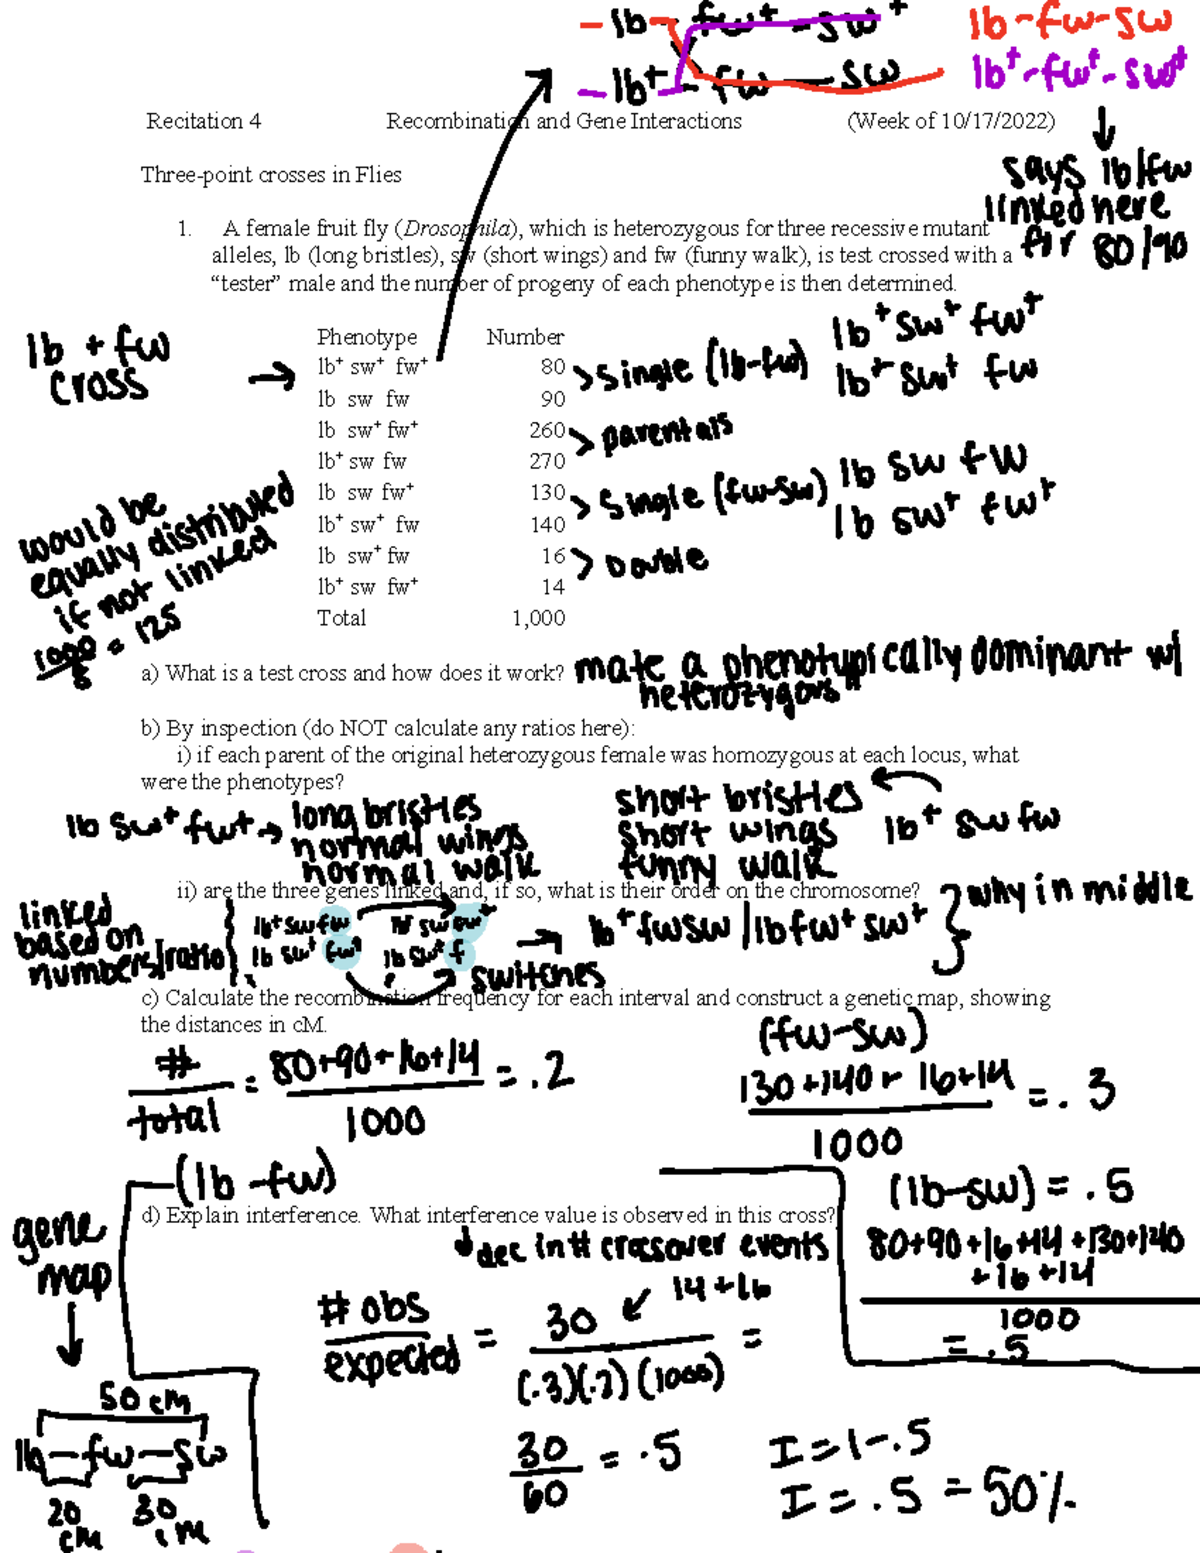 - lb - fw⁺ - sw⁺
lb - fw - sw
- lb⁺ - fw - sw
lb⁺ - fw⁺ - sw⁺
Recitation 4 Recombination and Gene Interactions (Week of 10/17/2022)
says lb/fw
linked here
for 80/90
Three-point crosses in Flies
1. A female fruit fly (Drosophila), which is heterozygous for three recessive mutant
alleles, lb (long bristles), sw (short wings) and fw (funny walk), is test crossed with a
“tester” male and the number of progeny of each phenotype is then determined.
lb + fw
cross
Phenotype Number
lb⁺ sw⁺ fw⁺ 80
lb sw fw 90
lb sw⁺ fw⁺ 260
lb⁺ sw fw 270
lb sw fw⁺ 130
lb⁺ sw⁺ fw 140
lb sw⁺ fw 16
lb⁺ sw fw⁺ 14
Total 1,000
single (lb-fw)
lb⁺ sw⁺ fw⁺
lb⁺ sw⁺ fw
parentals
single (fw-sw)
lb sw fw
lb sw⁺ fw⁺
Double
would be
equally distributed
if not linked
1000/8 = 125
a) What is a test cross and how does it work?
mate a phenotypically dominant w/
heterozygous
b) By inspection (do NOT calculate any ratios here):
i) if each parent of the original heterozygous female was homozygous at each locus, what
were the phenotypes?
lb sw⁺ fw⁺ → long bristles
normal wings
normal walk
short bristles
short wings
funny walk
lb⁺ sw fw
ii) are the three genes linked and, if so, what is their order on the chromosome?
linked
based on
numbers/ratio
lb⁺ sw fw
lb sw⁺ fw⁺
switches
lb⁺ fw sw / lb fw⁺ sw⁺
why in middle
c) Calculate the recombination frequency for each interval and construct a genetic map, showing
the distances in cM.
#/total = 80+90+16+14/1000 = .2
(lb-fw)
(fw-sw)
130+140+16+14/1000 = .3
(lb-sw) = .5
80+90+16+14+130+140
+16+14
1000
= .5
gene
map
d) Explain interference. What interference value is observed in this cross?
↓ dec in # crossover events
# obs/expected = 30/(.3)(.2)(1000) =
14+16
30/60 = .5
I = 1-.5
I = .5 = 50%
50 cM
lb - fw - sw
20 cM
30 cM